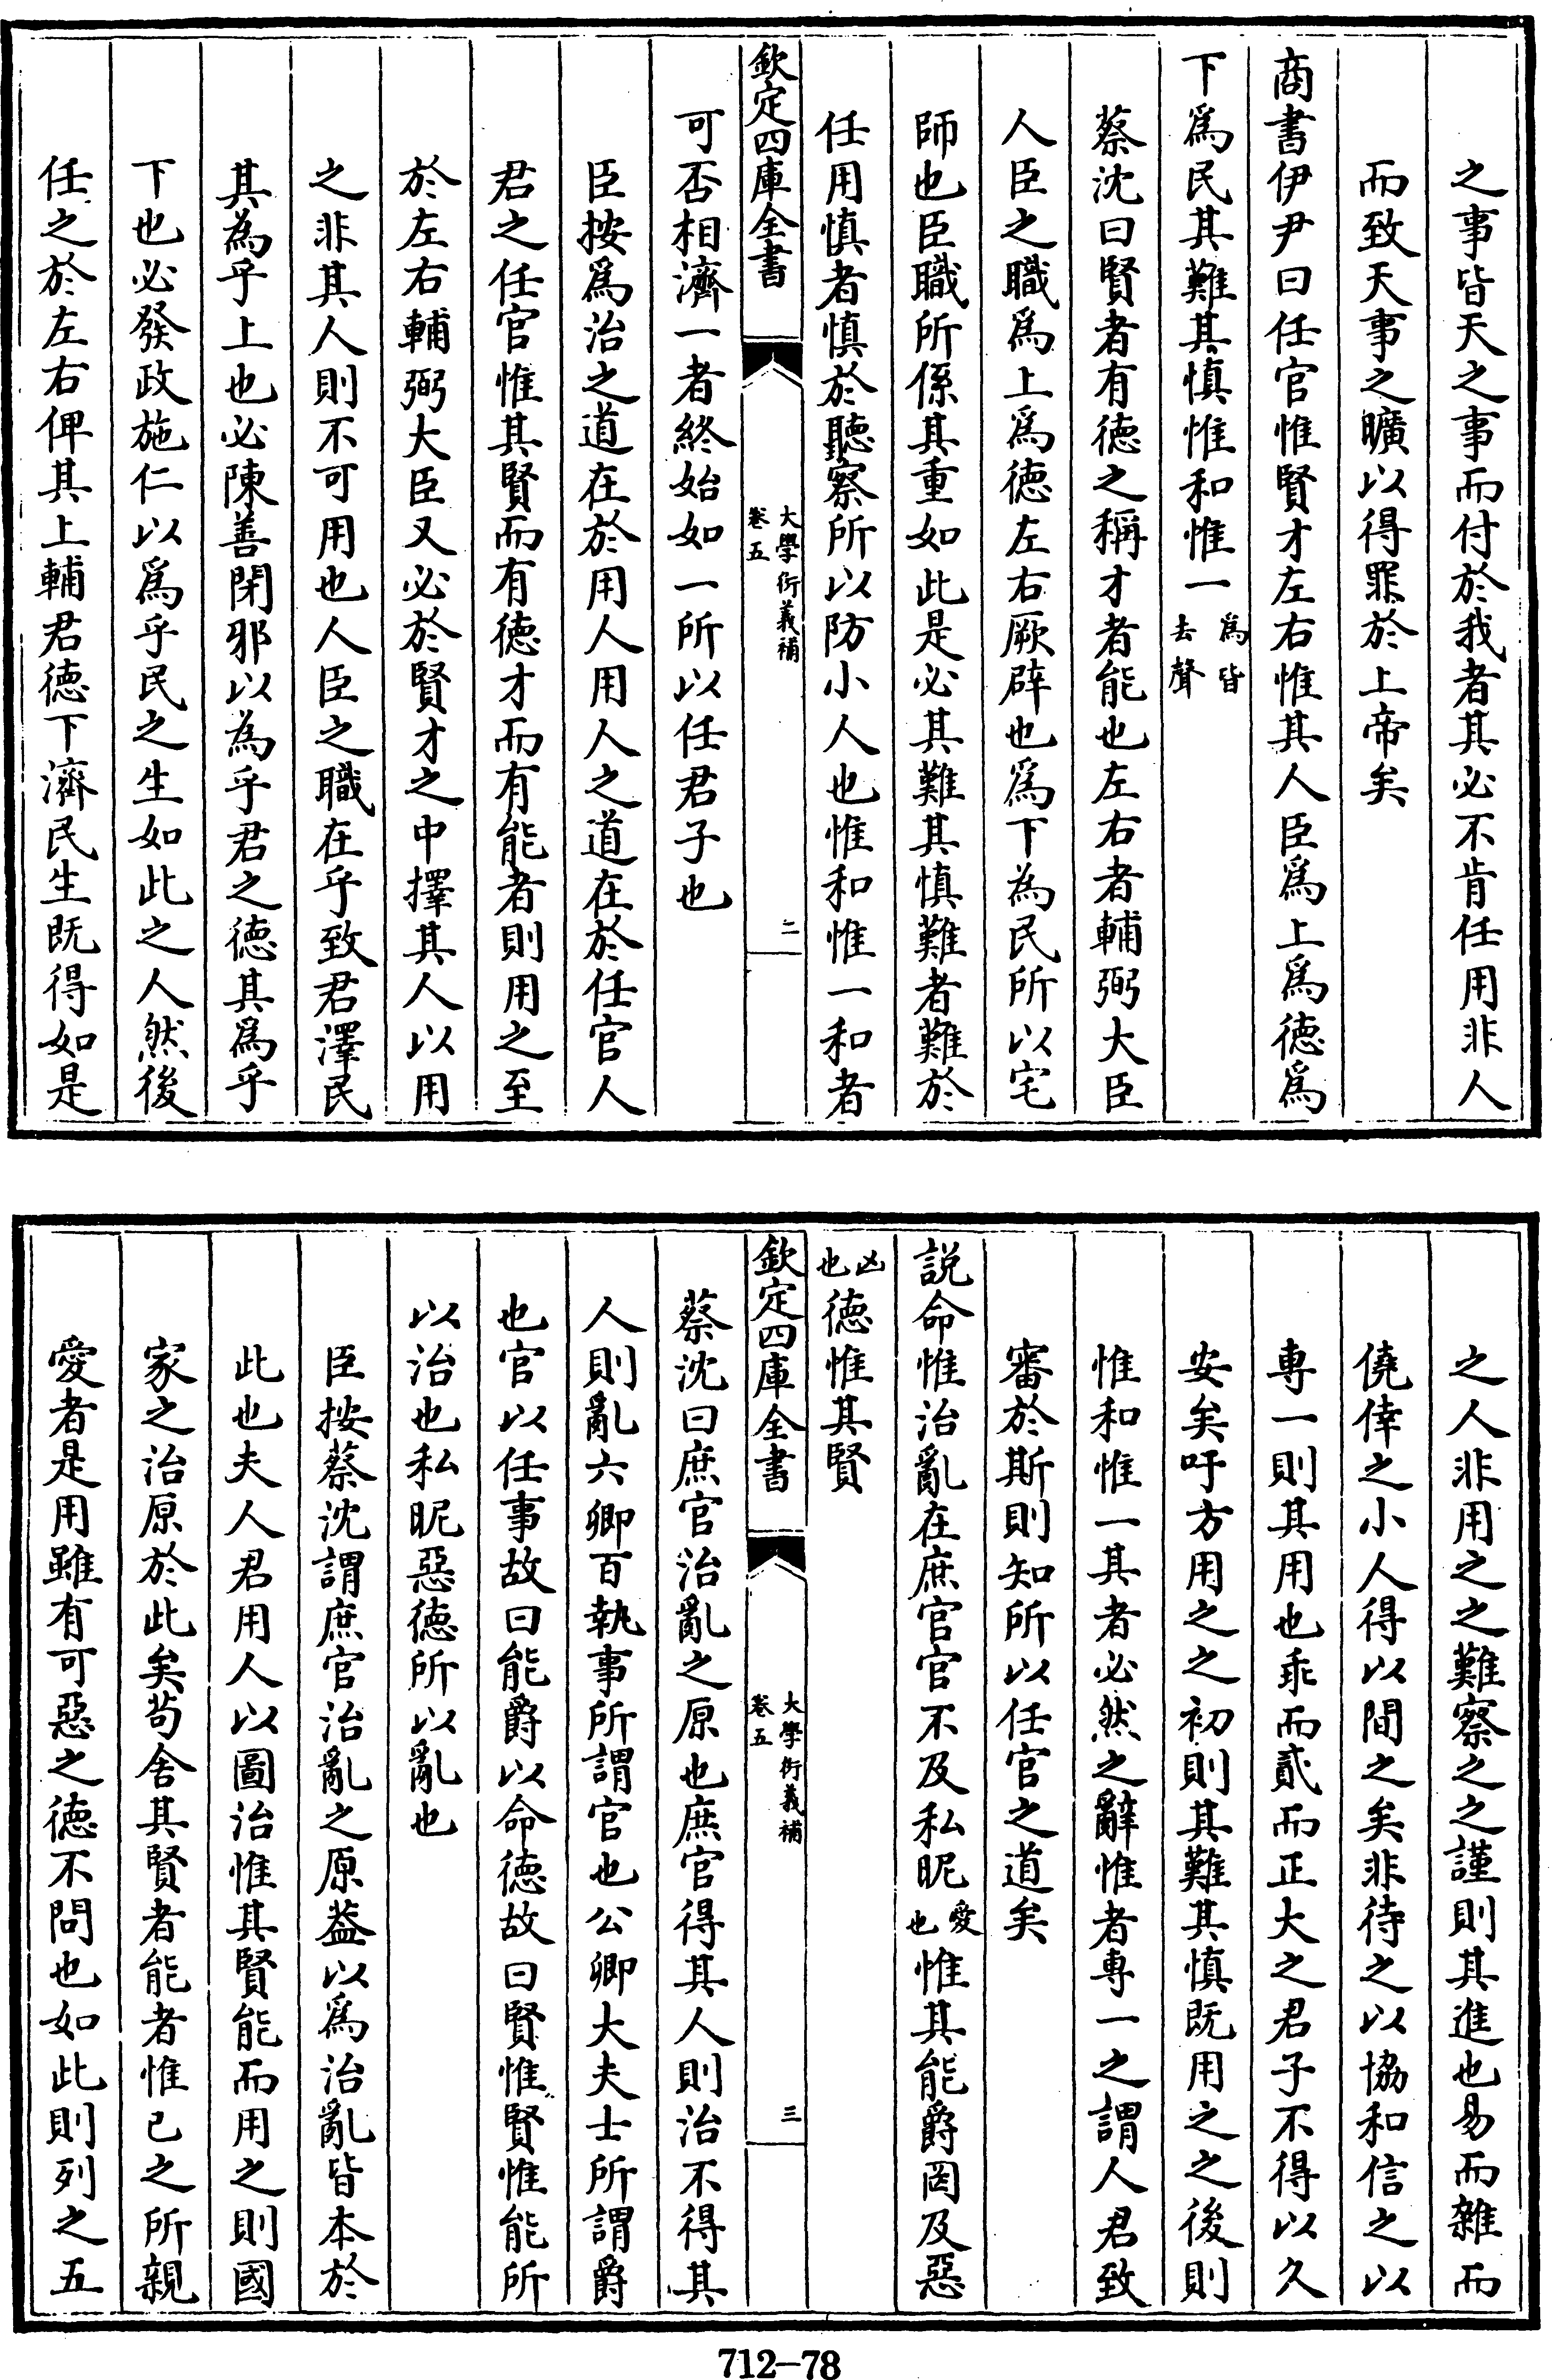 之事皆天之事而付於我者其必不肯任用非人
而致天事之曠以得罪於上帝矣
商書伊尹曰任官惟賢才左右惟其人臣爲上爲德爲
下爲民其難其慎惟和惟一爲皆去聲
蔡沈曰賢者有德之稱才者能也左右者輔弼大臣
人臣之職爲上爲德左右厥辟也爲下為民所以宅
師也臣職所係其重如此是必其難其慎難者難於
任用慎者慎於聽察所以防小人也惟和惟一和者
欽定四庫全書
大學衍義補
卷五
二
可否相濟一者終始如一所以任君子也
臣按爲治之道在於用人用人之道在於任官人
君之任官惟其賢而有德才而有能者則用之至
於左右輔弼大臣又必於賢才之中擇其人以用
之非其人則不可用也人臣之職在乎致君澤民
其為乎上也必陳善閉邪以為乎君之德其爲乎
下也必發政施仁以爲乎民之生如此之人然後
任之於左右俾其上輔君德下濟民生既得如是
之人非用之之難察之之謹則其進也易而雜而
僥倖之小人得以間之矣非待之以協和信之以
專一則其用也乖而貳而正大之君子不得以久
安矣吁方用之之初則其難其慎既用之之後則
惟和惟一其者必然之辭惟者專一之謂人君致
審於斯則知所以任官之道矣
說命惟治亂在庶官官不及私昵愛也惟其能爵罔及惡
凶也德惟其賢
欽定四庫全書
大學衍義補
卷五
三
蔡沈曰庶官治亂之原也庶官得其人則治不得其
人則亂六卿百執事所謂官也公卿大夫士所謂爵
也官以任事故曰能爵以命德故曰賢惟賢惟能所
以治也私昵惡德所以亂也
臣按蔡沈謂庶官治亂之原葢以爲治亂皆本於
此也夫人君用人以圖治惟其賢能而用之則國
家之治原於此矣茍舍其賢者能者惟已之所親
愛者是用雖有可惡之德不問也如此則列之五
712—78